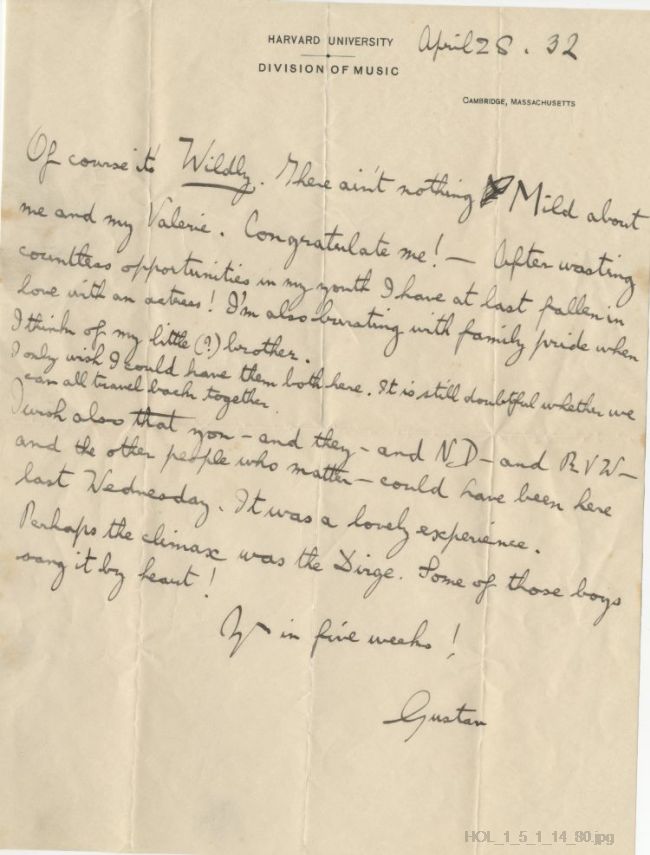 HARVARD UNIVERSITY
DIVISION OF MUSIC
April 28. 32
CAMBRIDGE, MASSACHUSETTS
Of course it's Wildly. There ain't nothing Mild about
me and my Valerie. Congratulate me! — After wasting
countless opportunities in my youth I have at last fallen in
love with an actress! I'm also bursting with family pride when
I think of my little (?) brother.
I only wish I could have them both here. It is still doubtful whether we
can all travel back together.
I wish also that you – and they – and ND – and RVW –
and the other people who matter – could have been here
last Wednesday. It was a lovely experience.
Perhaps the climax was the Dirge. Some of those boys
sang it by heart!
in five weeks!
Gustav
HOL_1_5_1_14_80.jpg